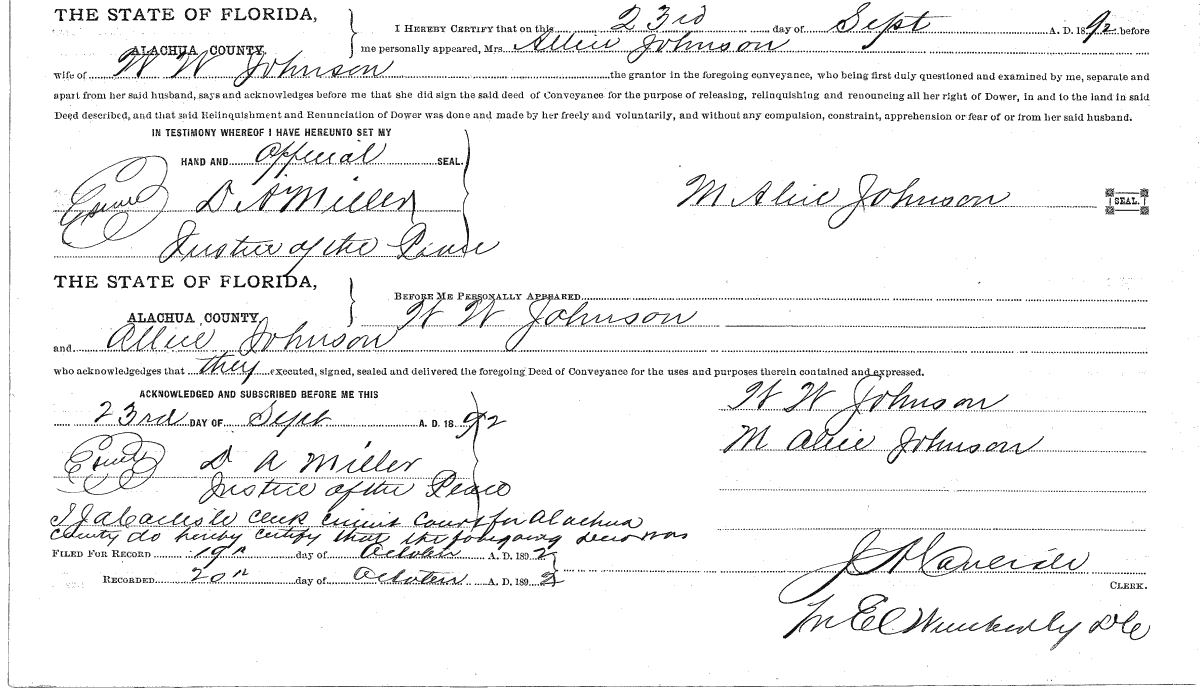 THE STATE OF FLORIDA,
ALACHUA COUNTY.
I HEREBY CERTIFY that on this 23rd day of Sept A. D. 1892 before
me personally appeared, Mrs. Allie Johnson
wife of W W Johnson the grantor in the foregoing conveyance, who being first duly questioned and examined by me, separate and
apart from her said husband, says and acknowledges before me that she did sign the said deed of Conveyance for the purpose of releasing, relinquishing and renouncing all her right of Dower, in and to the land in said
Deed described, and that said Relinquishment and Renunciation of Dower was done and made by her freely and voluntarily, and without any compulsion, constraint, apprehension or fear of or from her said husband.
IN TESTIMONY WHEREOF I HAVE HEREUNTO SET MY
HAND AND Official SEAL.
D A Miller
M Alice Johnson SEAL.
Justice of the Peace
THE STATE OF FLORIDA,
ALACHUA COUNTY.
BEFORE ME PERSONALLY APPEARED
W W Johnson
and Allie Johnson
who acknowledgedges that they executed, signed, sealed and delivered the foregoing Deed of Conveyance for the uses and purposes therein contained and expressed.
ACKNOWLEDGED AND SUBSCRIBED BEFORE ME THIS
23rd DAY OF Sept A. D. 1892
W W Johnson
M Alice Johnson
D A Miller
Justice of the Peace
I J A Carlisle Clerk Circuit Court for Alachua
County do hereby certify that the foregoing deed was
FILED FOR RECORD 19th day of October A. D. 1892
RECORDED 20th day of October A. D. 1892
J A Carlisle
CLERK.
Wimberly D C